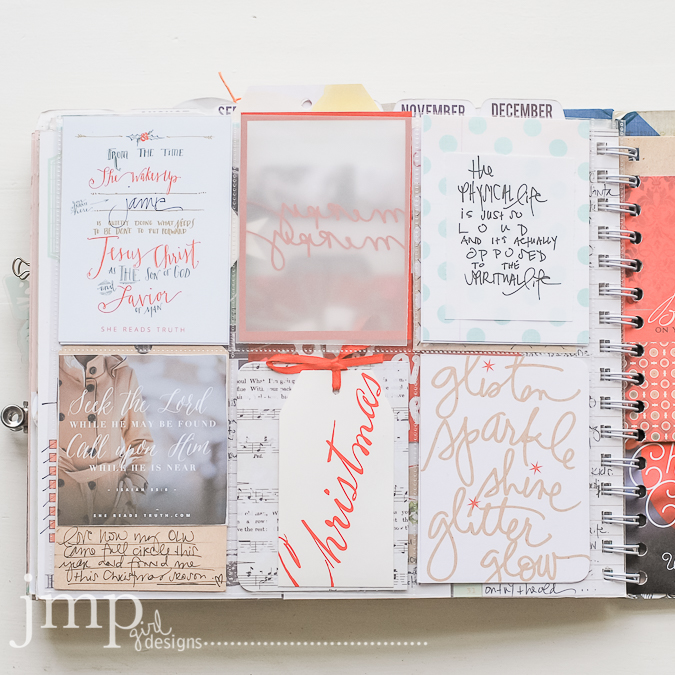 SE
NOVEMBER
DECEMBER
FROM THE TIME
She wakes up
jamie
IS QUIETLY DOING WHAT NEEDS
TO BE DONE TO PUT FORWARD
Jesus Christ
AS THE SON OF GOD
and
Savior
OF MAN
SHE READS TRUTH
merry
merry
the
PHYSICAL life
is just so
LOUD
AND ITS ACTUALLY
OPPOSED
TO THE
SPIRITUAL life
Seek the Lord
WHILE HE MAY BE FOUND
Call upon Him
WHILE HE IS NEAR
SHE READS TRUTH.COM
love how my OLW
came full circle this
year and found me
this Christmas season.
Christmas
glisten
sparkle
shine
glitter
glow
jmp
girl
designs